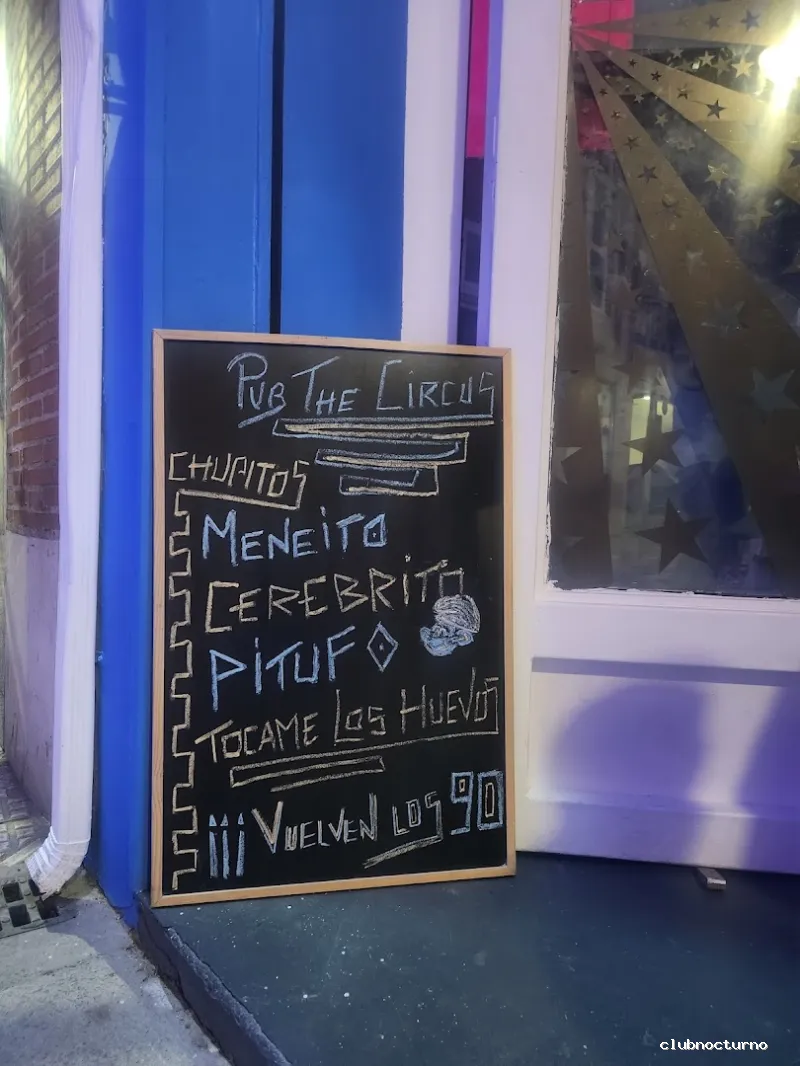 PUB THE CIRCUS
CHUPITOS
MENEITO
CEREBRITO
PITUFO
TOCAME LOS HUEVOS
¡¡¡VUELVEN LOS 90
clubnocturno